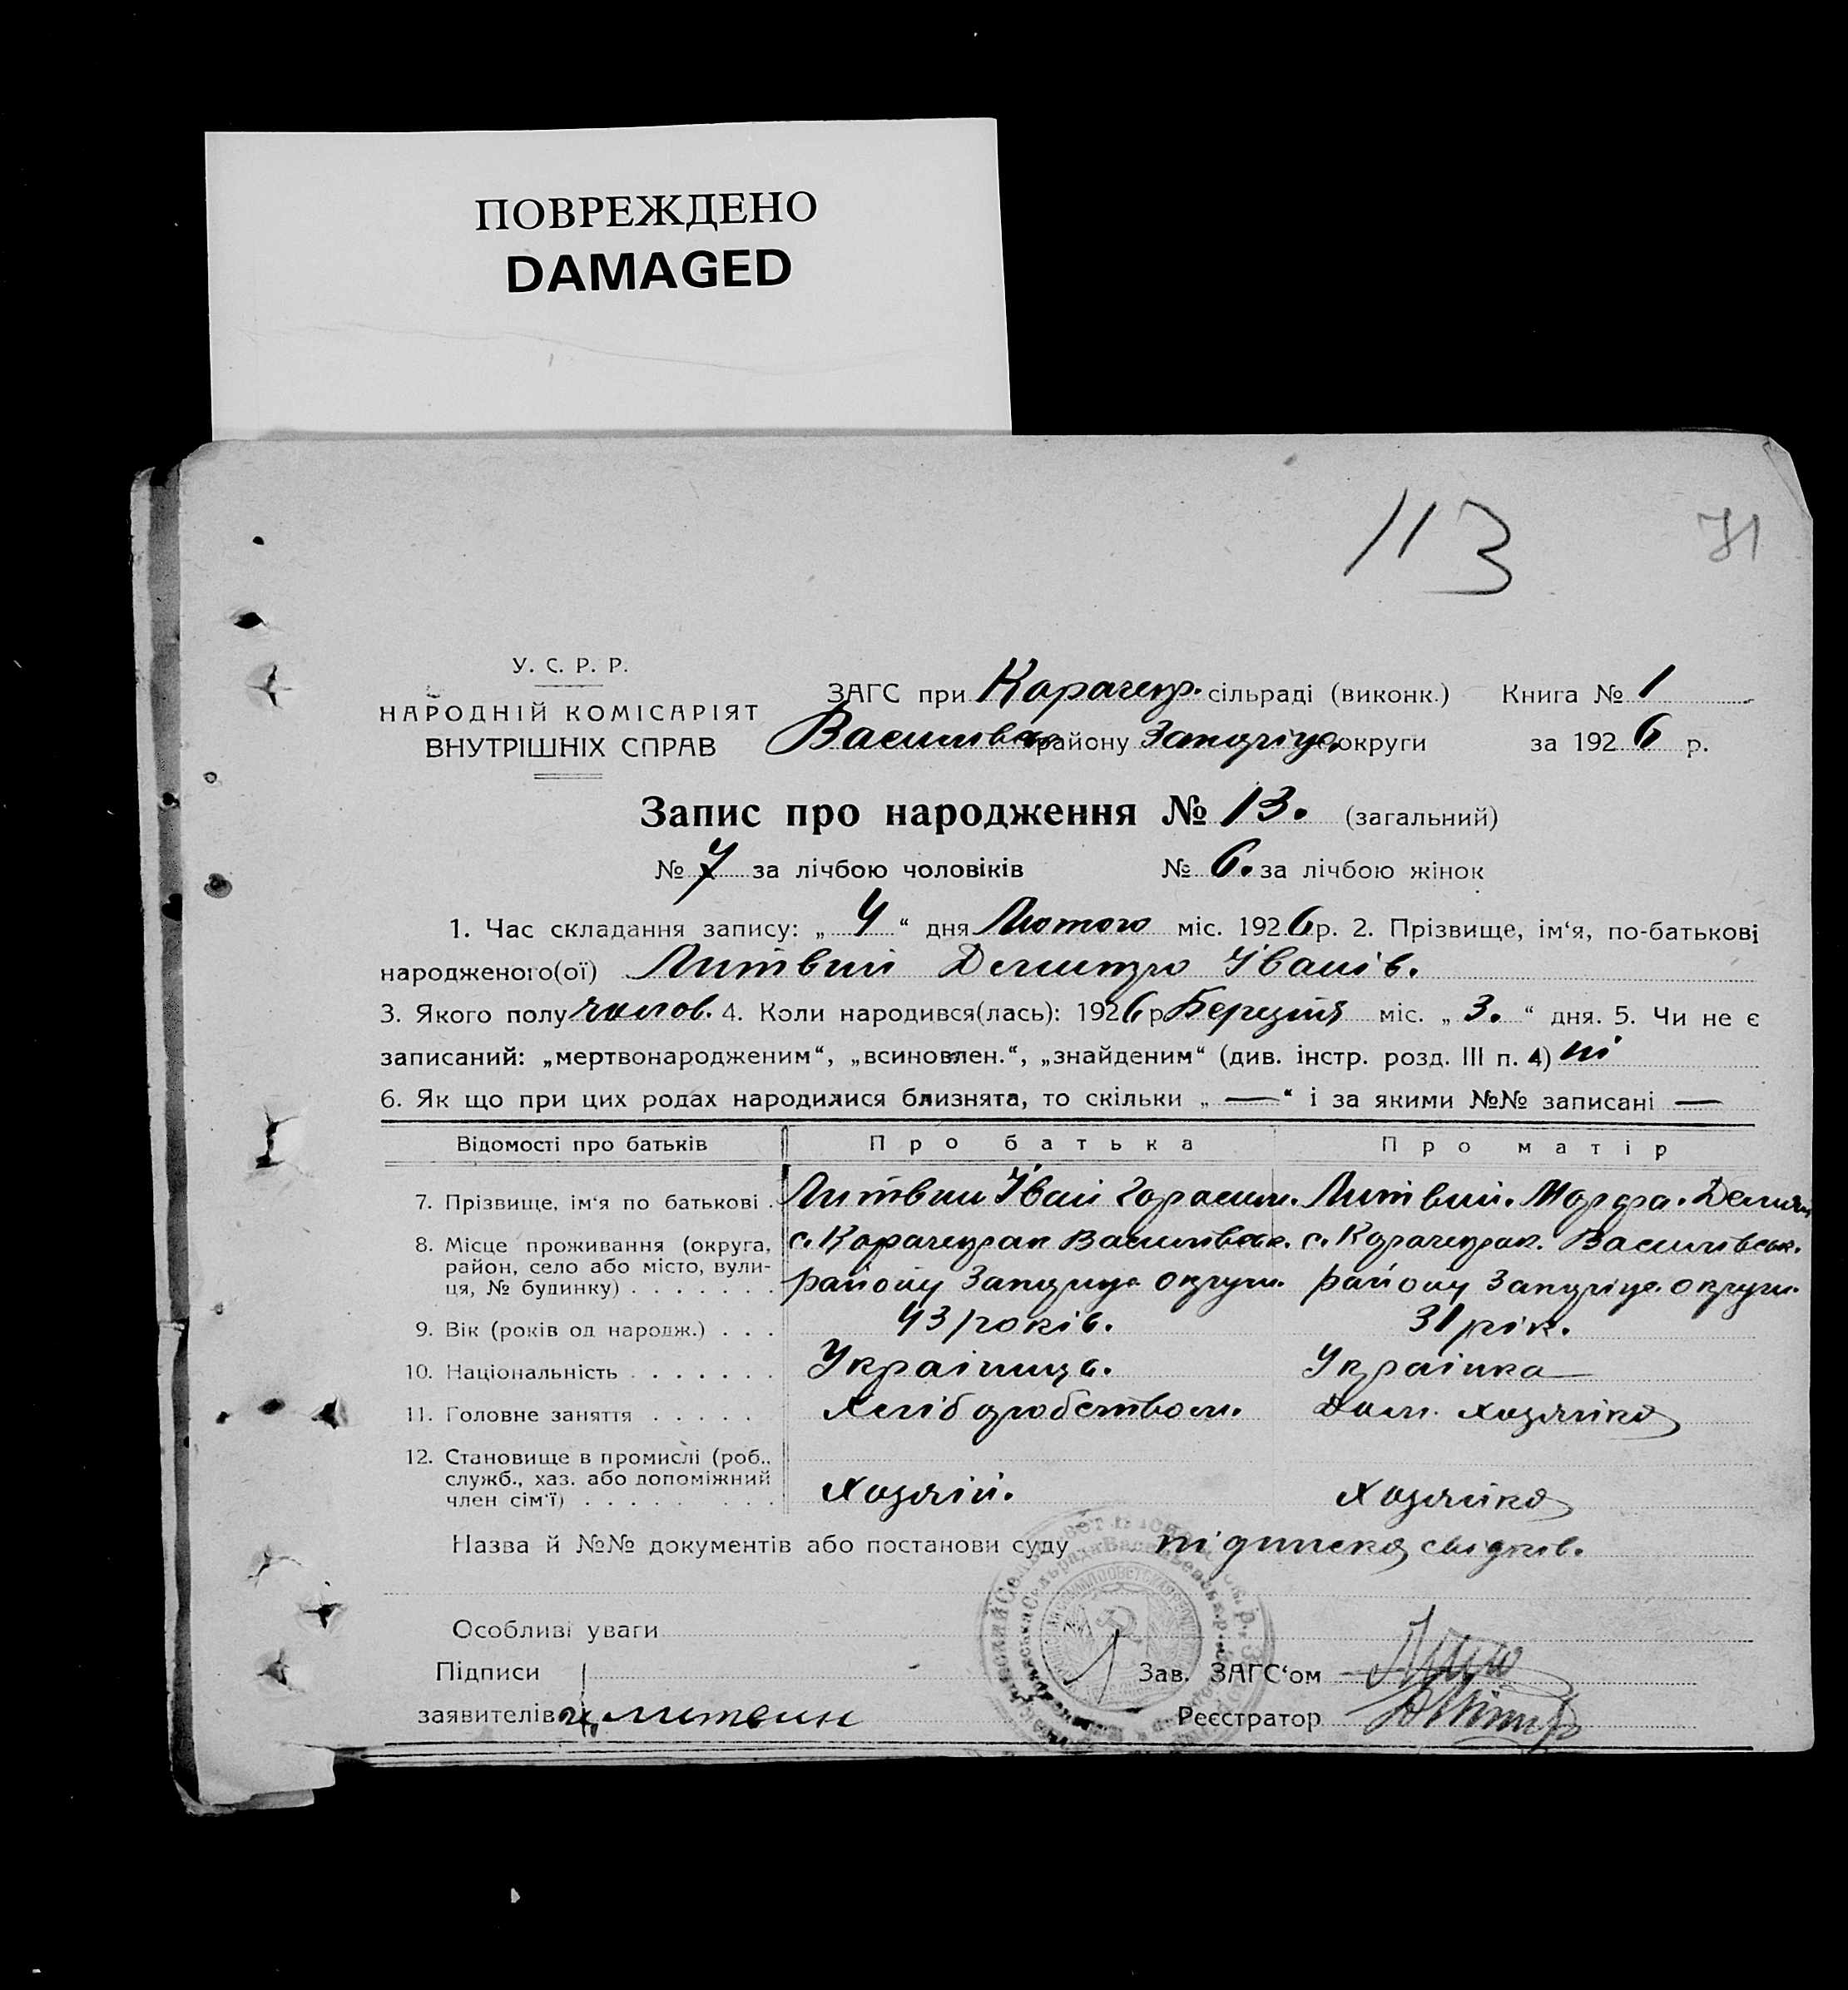 ПОВРЕЖДЕНО
DAMAGED
113 71
У. С. Р. Р.
НАРОДНІЙ КОМІСАРІЯТ
ВНУТРІШНІХ СПРАВ
ЗАГС при Карачекр. сільраді (виконк.) Книга № 1
Василівськ району Запоріць округи за 1926 р.
Запис про народження № 13. (загальний)
№ 7 за лічбою чоловіків № 6. за лічбою жінок
1. Час складання запису: „ 4 “ дня Лютого міс. 1926 р. 2. Прізвище, ім‘я, по-батькові
народженого(ої) Литвин Дмитро Іванів.
3. Якого полу чолов. 4. Коли народився(лась): 1926 р Березня міс. „ 3. “ дня. 5. Чи не є
записаний: „мертвонародженим“, „всиновлен.“, „знайденим“ (див. інстр. розд. III п. 4) ні
6. Як що при цих родах народилися близнята, то скільки „ — “ і за якими №№ записані —
Відомості про батьків Про батька Про матір
7. Прізвище, ім‘я по батькові . Литвин Іван Гарасим. Литвин. Марфа. Демян
8. Місце проживання (округа, с. Карачекрак Василівськ. с. Карачекрак. Василівськ.
район, село або місто, вули-
ця, № будинку) . . . . . . . району Запоріць округи. району Запоріць. округи.
9. Вік (років од народж.) . . . 43 років. 31 рік.
10. Національність . . . . . . . Українець. Українка
11. Головне заняття . . . . . Хліборобством. Дом. хозяйка
12. Становище в промислі (роб.,
служб., хаз. або допоміжний
член сім‘ї) . . . . . . . . Хозяїн. Хозяйка
Назва й №№ документів або постанови суду підписка свідків.
Особливі уваги
Підписи Зав. ЗАГС‘ом
заявителів И. литвин Реєстратор